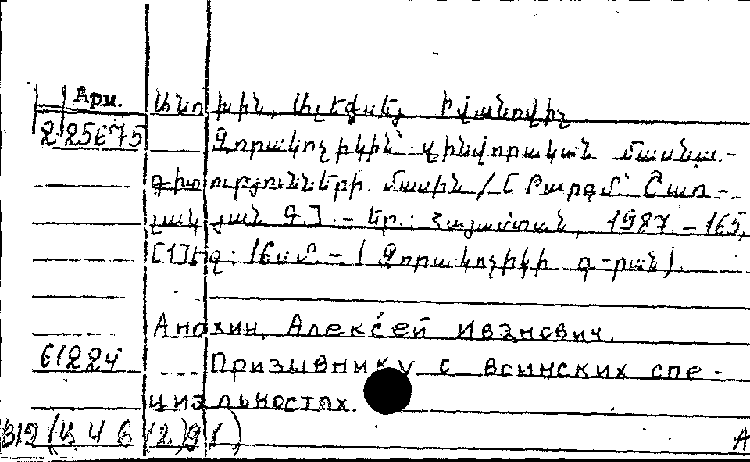 Арм.
Անոխին, Ալեքսեյ Իվանովիչ
225675 Զորակոչիկին՝ զինվորական մասնա-
գիտությունների մասին / [Թարգմ՝ Շառ-
յան Գ.]. – Եր.: Հայաստան, 1987 – 165,
[1] էջ: 16սմ – (Զորակոչիկի գ-րան).
Анохин, Алексей Иванович.
61224 Призывнику о воинских спе-
циальностях.
А